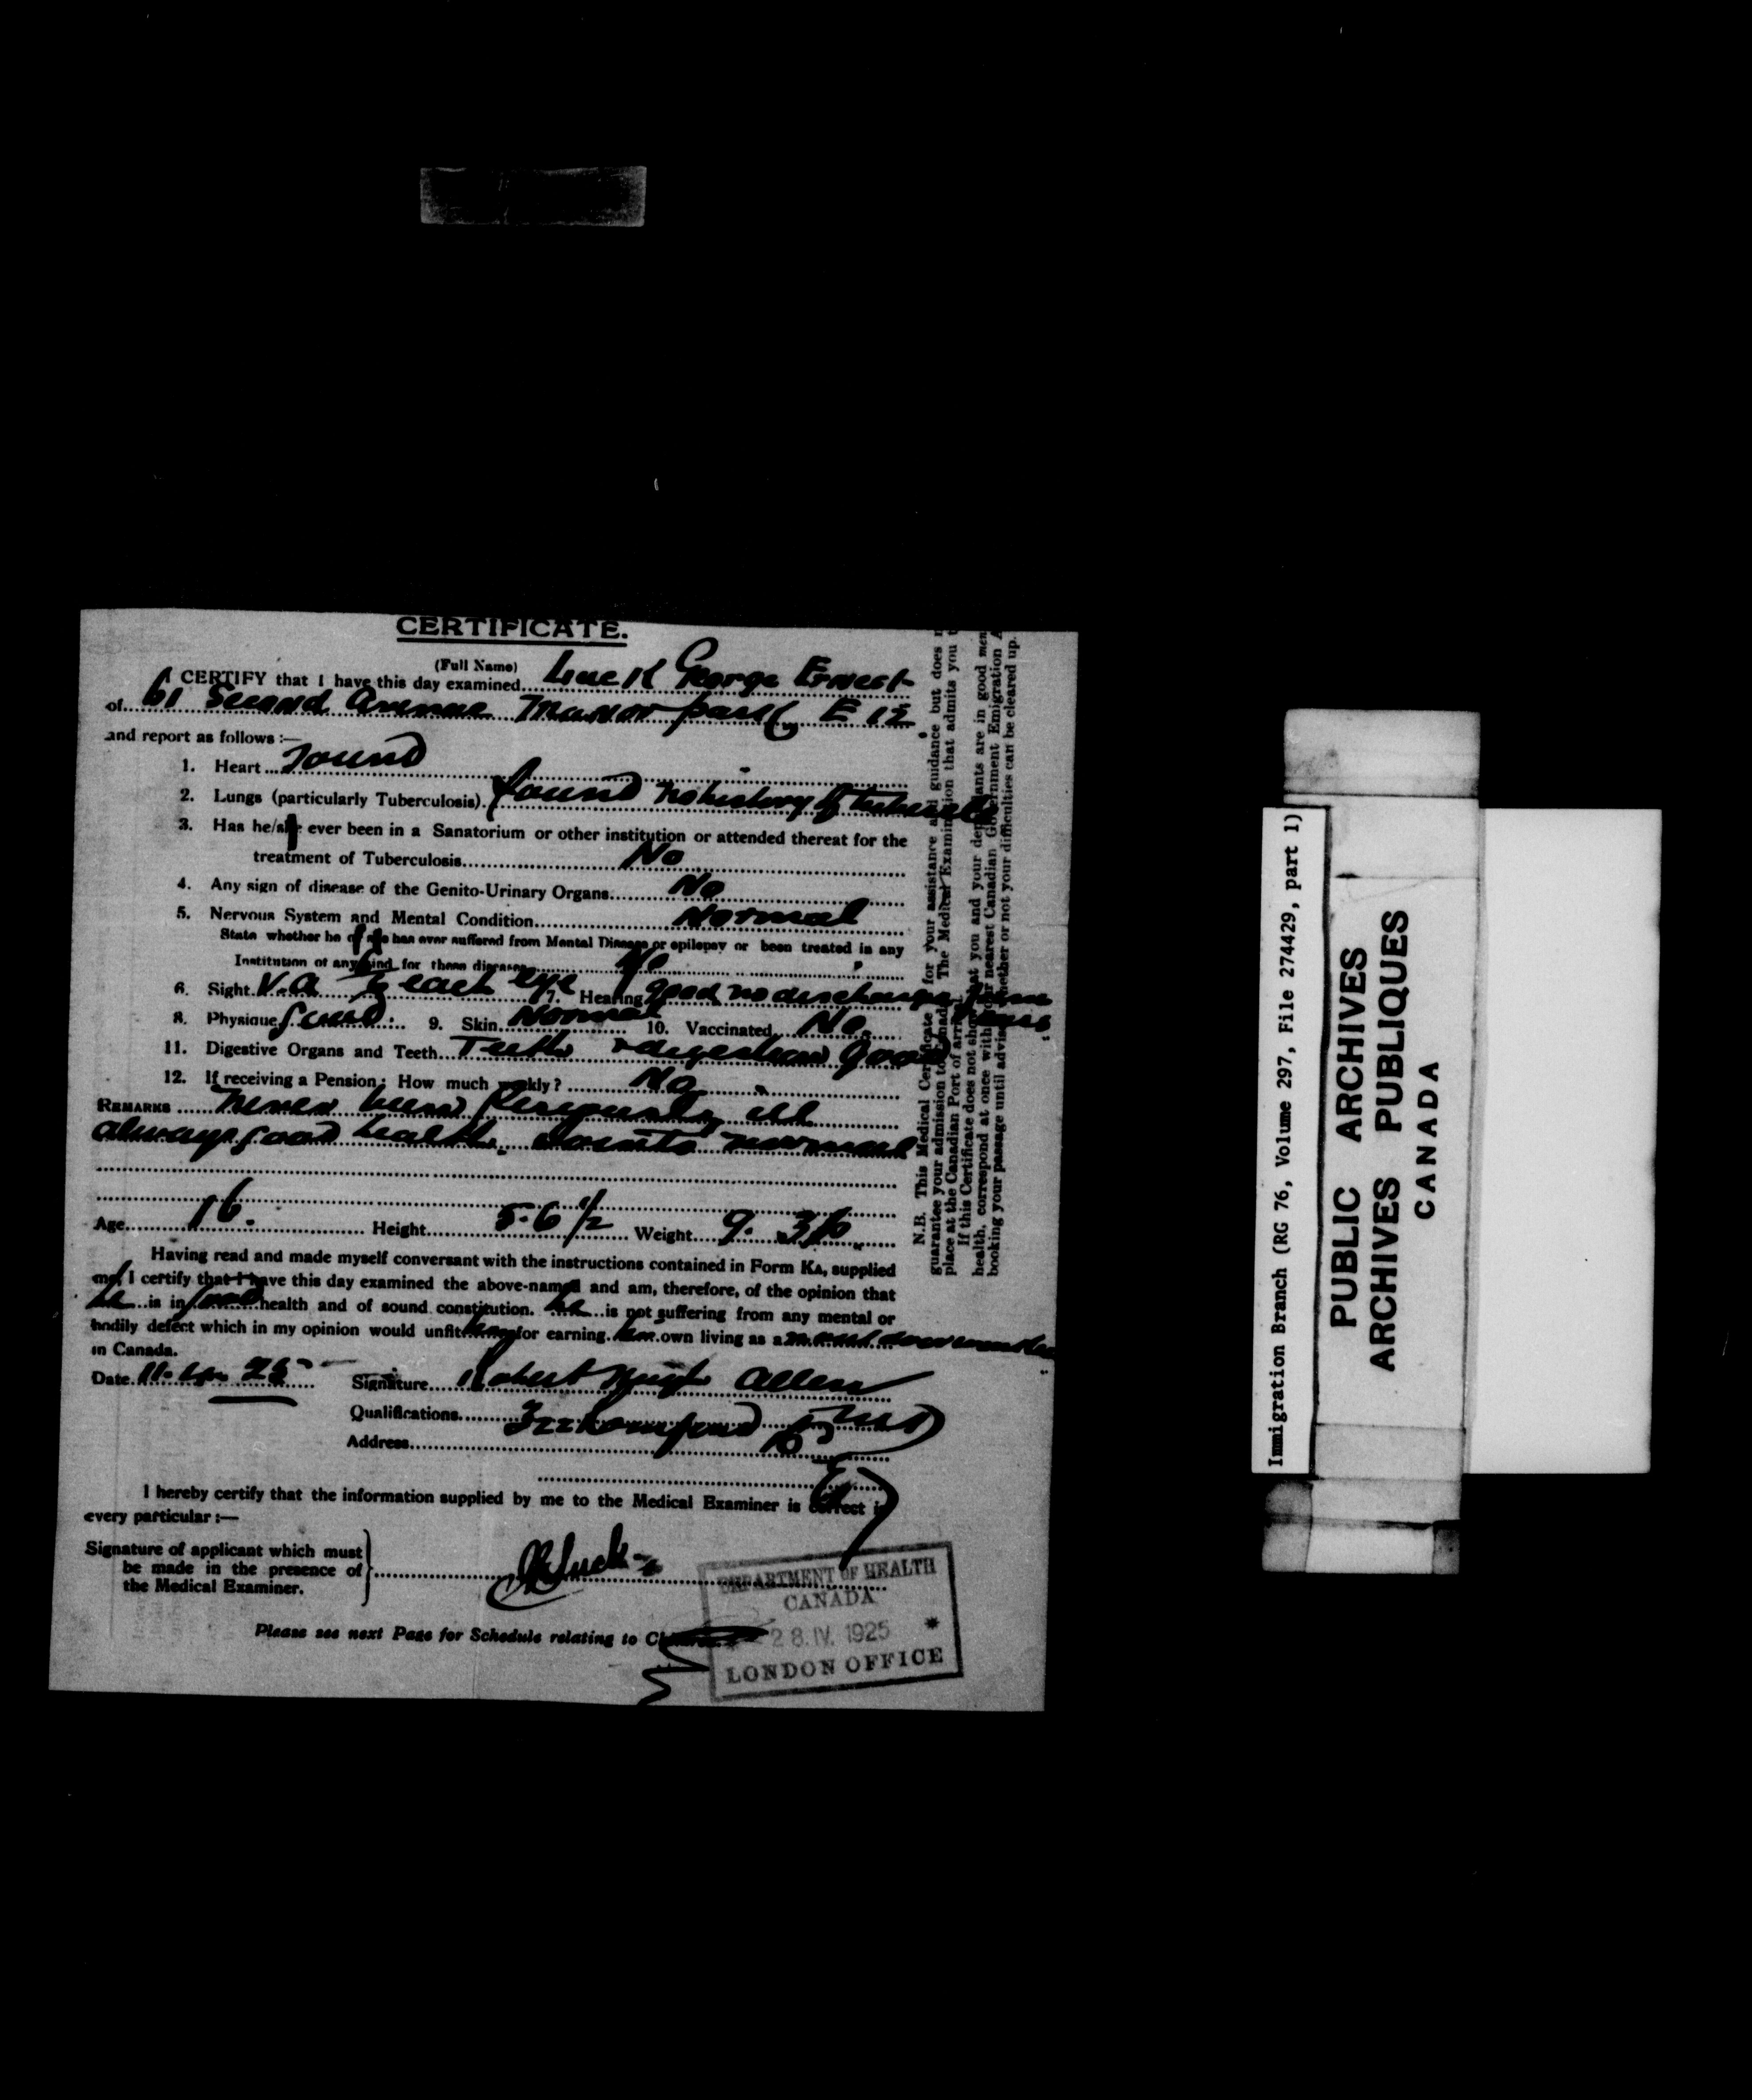 CERTIFICATE.
(Full Name)
I CERTIFY that I have this day examined Luck George Ernest
of 61 Second Avenue Manor park E 12
and report as follows :—
1. Heart Sound
2. Lungs (particularly Tuberculosis). Sound no history of
3. Has he/she ever been in a Sanatorium or other institution or attended thereat for the
treatment of Tuberculosis No
4. Any sign of disease of the Genito-Urinary Organs No
5. Nervous System and Mental Condition Normal
State whether he or she has ever suffered from Mental Disease or epilepsy or been treated in any
Institution of any kind for these diseases No
6. Sight V.A each eye 7. Hearing good no discharge from ears
8. Physique Good. 9. Skin Normal 10. Vaccinated No.
11. Digestive Organs and Teeth Teeth & digestion good
12. If receiving a Pension: How much weekly? No
REMARKS never been seriously ill
always good health. Joints normal
Age 16. Height 5.6 1/2 Weight 9.
Having read and made myself conversant with the instructions contained in Form KA, supplied
me, I certify that I have this day examined the above-named and am, therefore, of the opinion that
he is in good health and of sound constitution. he is not suffering from any mental or
bodily defect which in my opinion would unfit him for earning his own living as a
in Canada.
Date 11. Ap. 25 Signature Robert Allen
Qualifications
Address
I hereby certify that the information supplied by me to the Medical Examiner is correct in
every particular :—
Signature of applicant which must
be made in the presence of
the Medical Examiner.
Luck
Please see next Page for Schedule relating to Children
DEPARTMENT OF HEALTH
CANADA
28.IV.1925
LONDON OFFICE
N.B. This Medical Certificate for your assistance and guidance but does
guarantee your admission to Canada. The Medical Examination that admits you
place at the Canadian Port of arrival
If this Certificate does not show that you and your dependants are in good
health, correspond at once with your nearest Canadian Government Emigration
booking your passage until advised whether or not your difficulties can be cleared up.
Immigration Branch (RG 76, Volume 297, File 274429, part 1)
PUBLIC ARCHIVES
ARCHIVES PUBLIQUES
CANADA